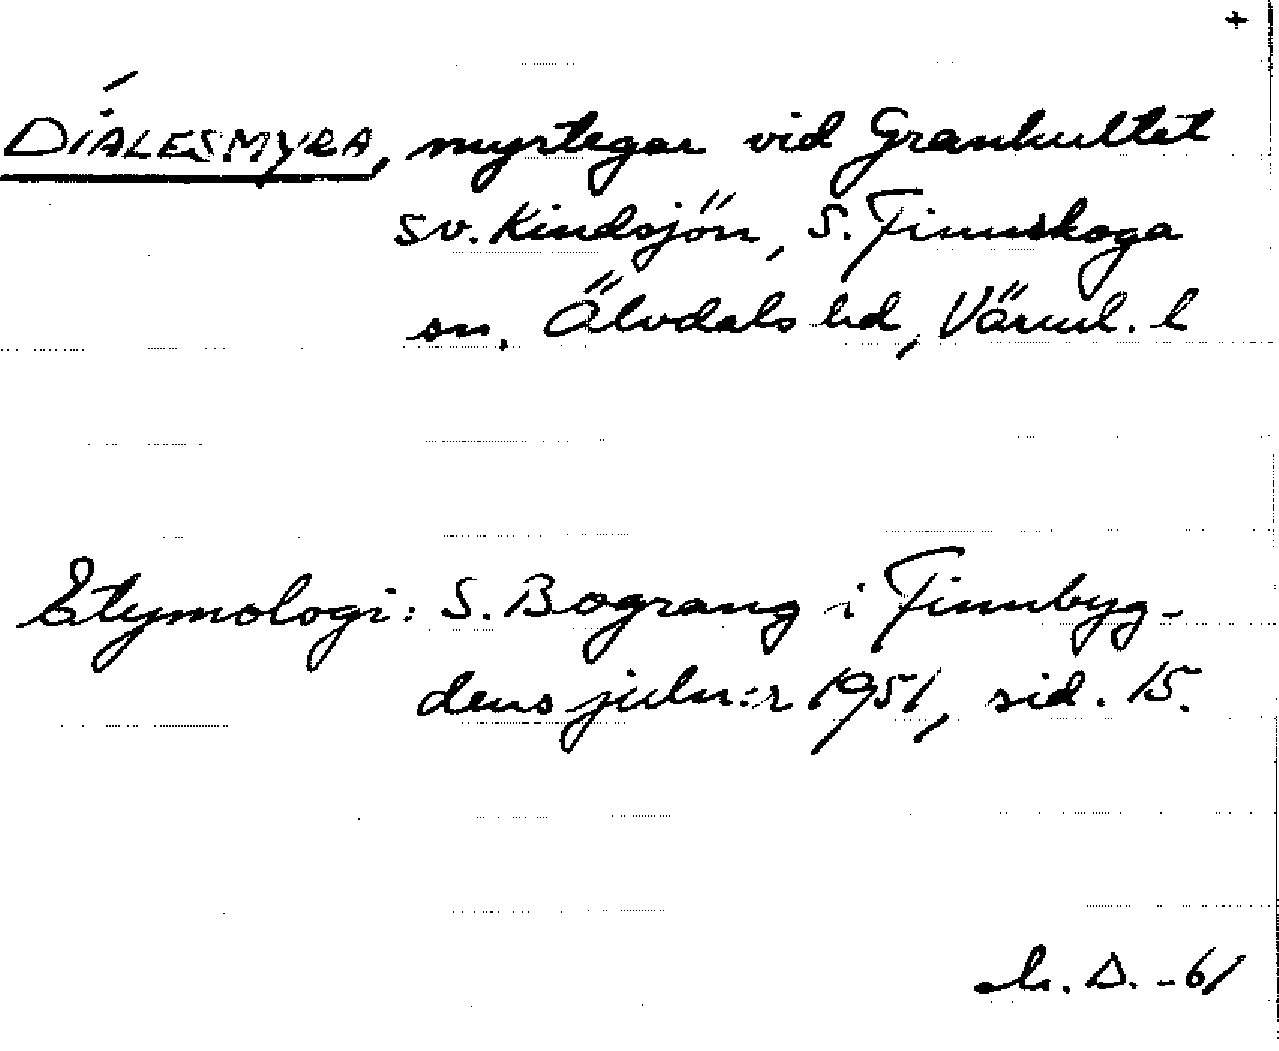 +
DIALESMYRA, myrtegar vid Grankullet
sv. Kindsjön, S. Finnskoga
sn. Älvdals hd, Värml. l
Etymologi: S. Bograng i Finnbyg-
dens julnr 1951, sid. 15.
D. -61